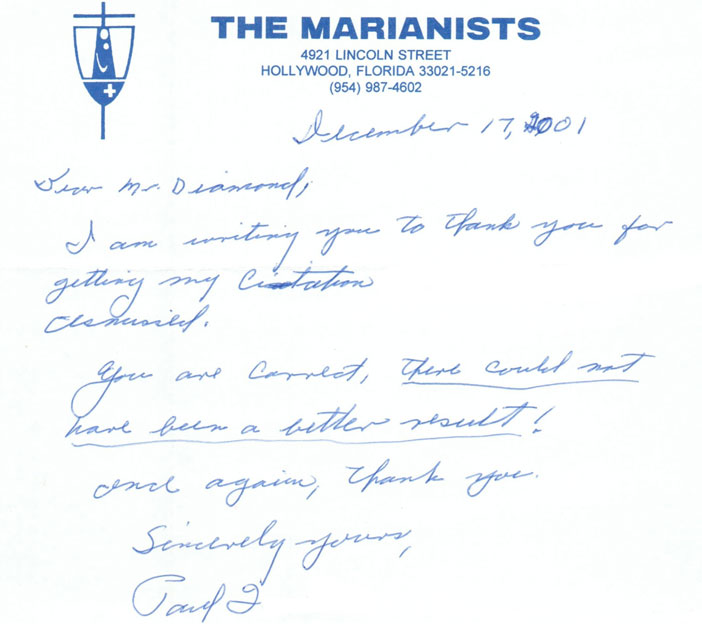 THE MARIANISTS
4921 LINCOLN STREET
HOLLYWOOD, FLORIDA 33021-5216
(954) 987-4602
December 17, 2001
Dear Mr. Diamond,
I am writing you to thank you for
getting my Citation
dismissed.
You are correct, there could not
have been a better result!
Once again, thank you.
Sincerely yours,
Paul